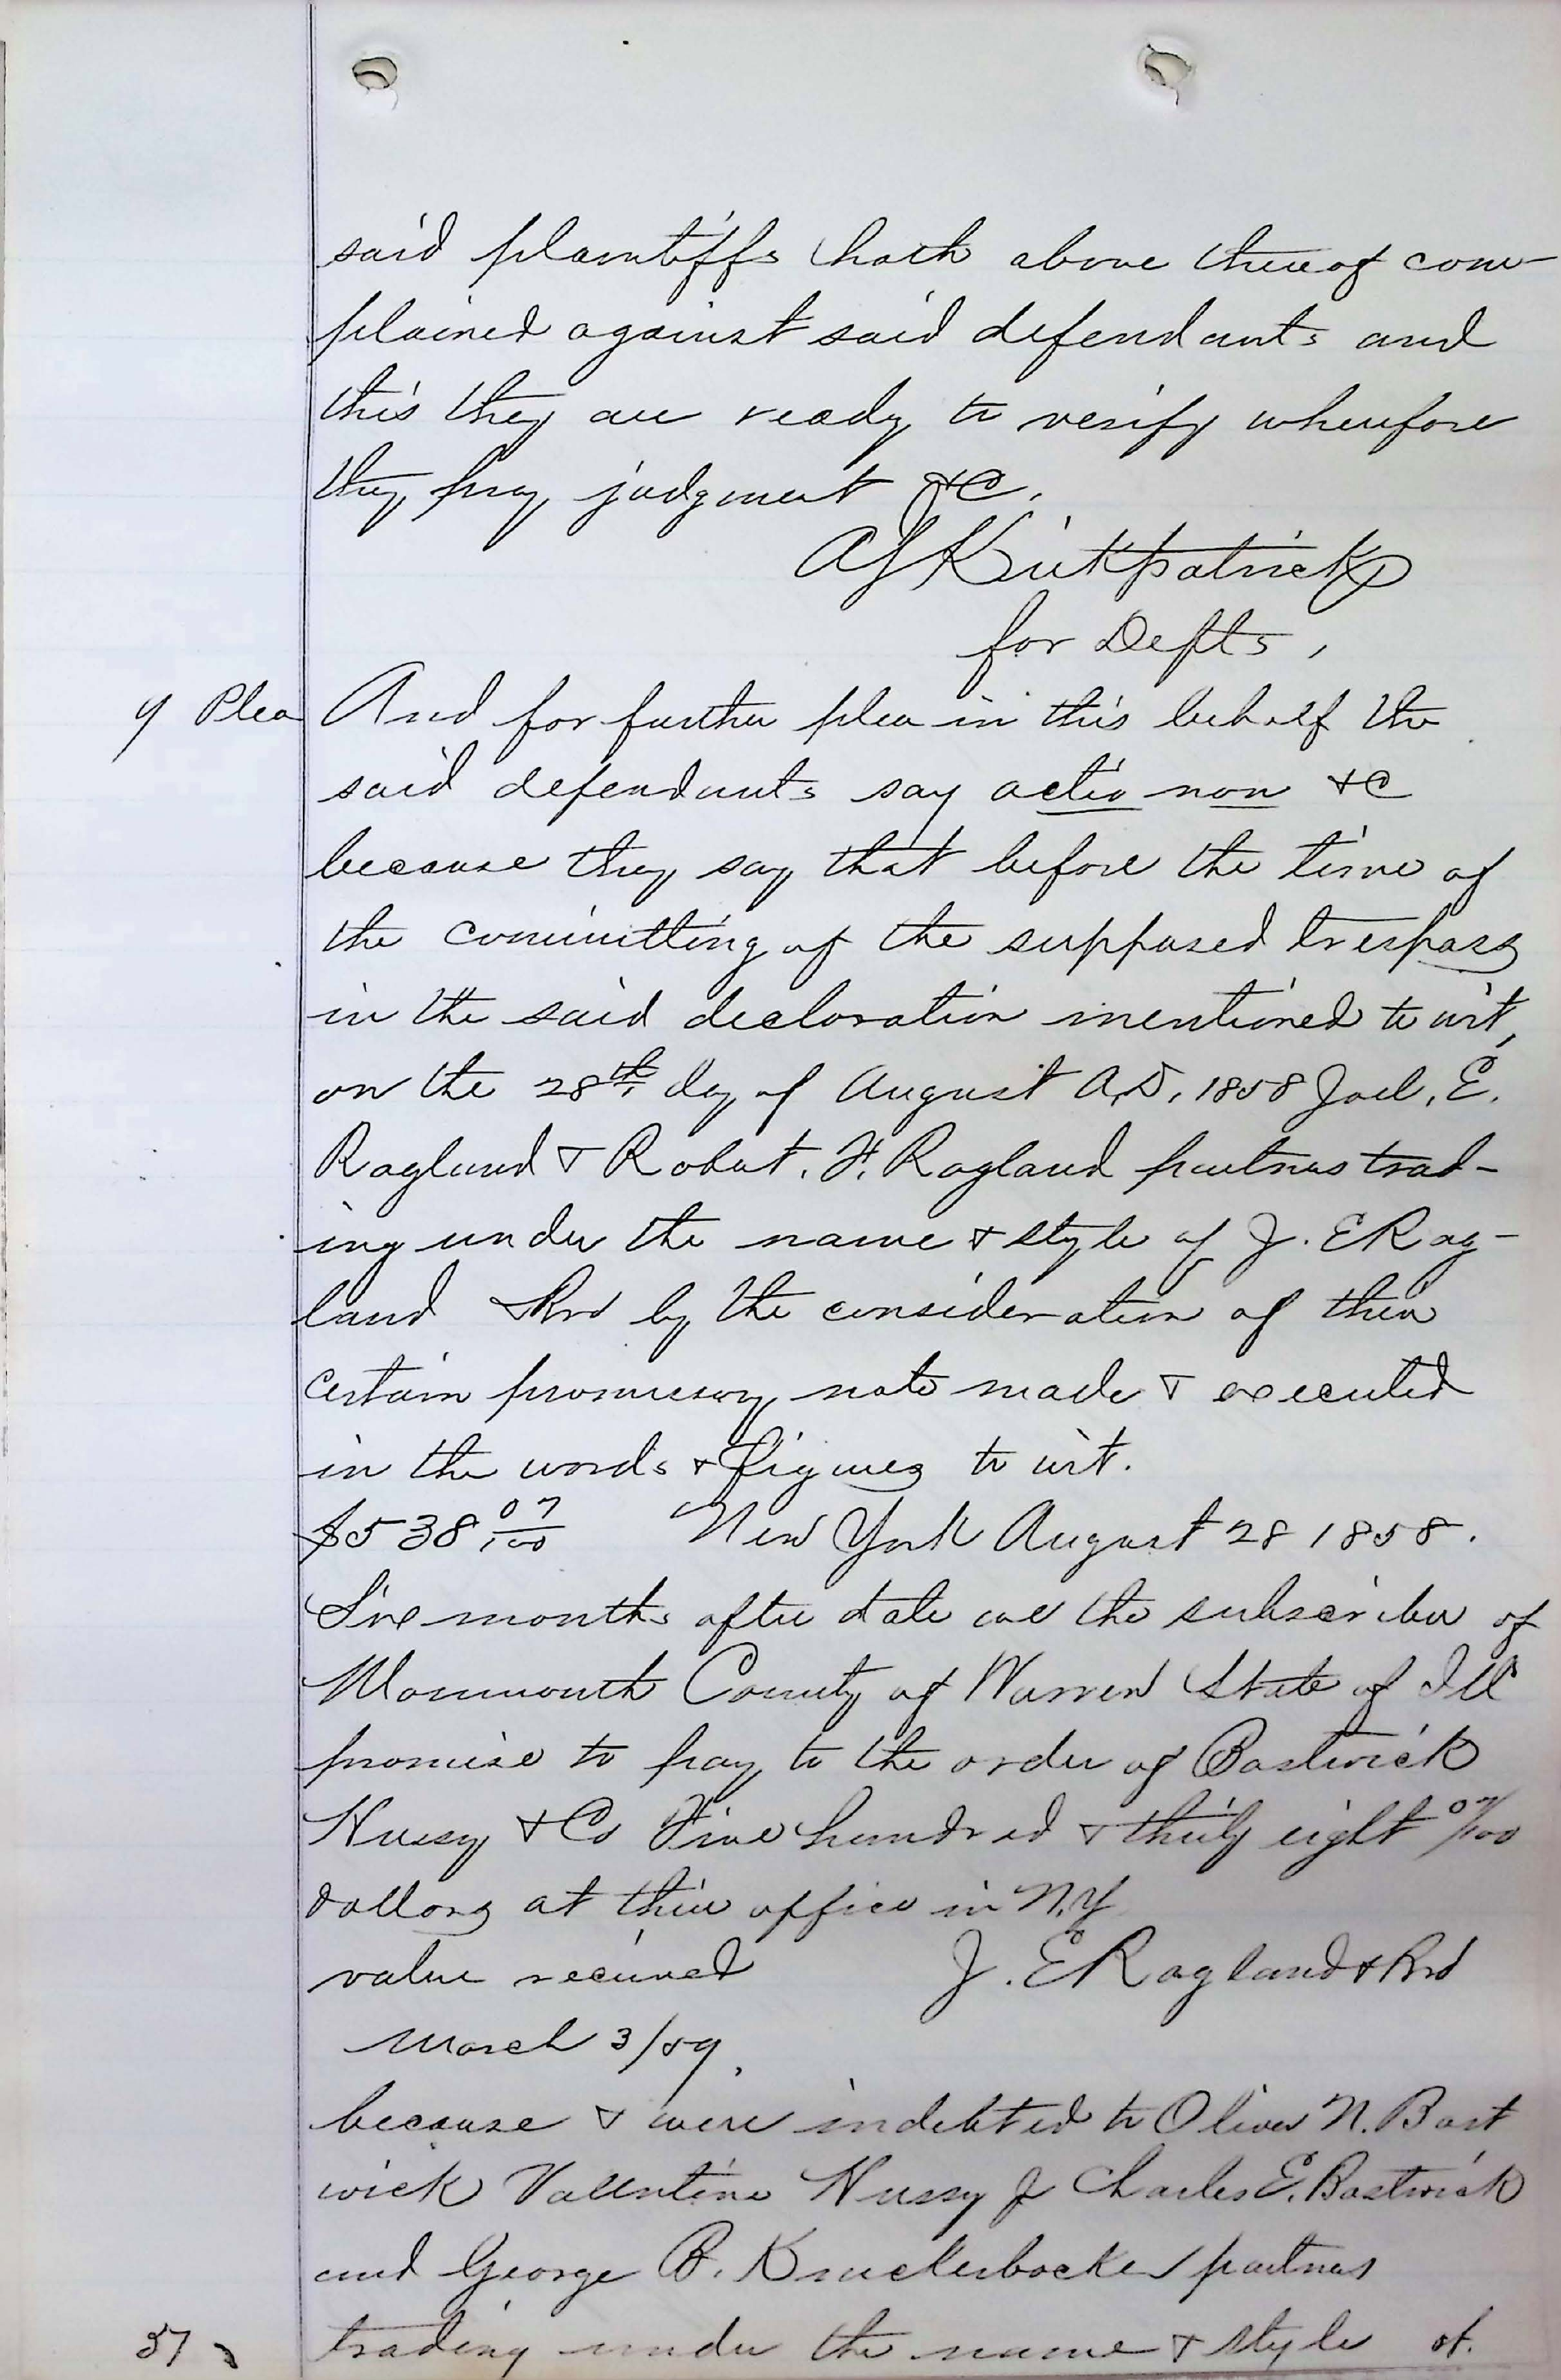 said plaintiffs hath above thereof com-
plained against said defendants and
this they are ready to verify wherefore
they pray judgment &C.
A J Kirkpatrick
for Defts,
9 Plea And for further plea in this behalf the
said defendants say actio non &C
because they say that before the time of
the committing of the supposed trespass
in the said declaration mentioned to wit,
on the 28th day of August A.D. 1858 Joel. E.
Ragland & Robert. H. Ragland partners trad-
ing under the name & style of J. E Rag-
land & Bro by the consideration of their
certain promissory note made & executed
in the words & figures to wit.
$538 07/100 New York August 28 1858.
Six months after date we the subscriber of
Monmouth County of Warren State of Ill
promise to pay to the order of Bostwick
Hussy & Co Five hundred & thirty eight 07/100
dollars at their office in N.Y
value received J. E Ragland & Bro
March 3/59.
because & were indebted to Oliver N. Bost
wick Valentine Hussy J Charles E. Bostwick
and George B. Knuckerbocker partners
trading under the name & style of.
37